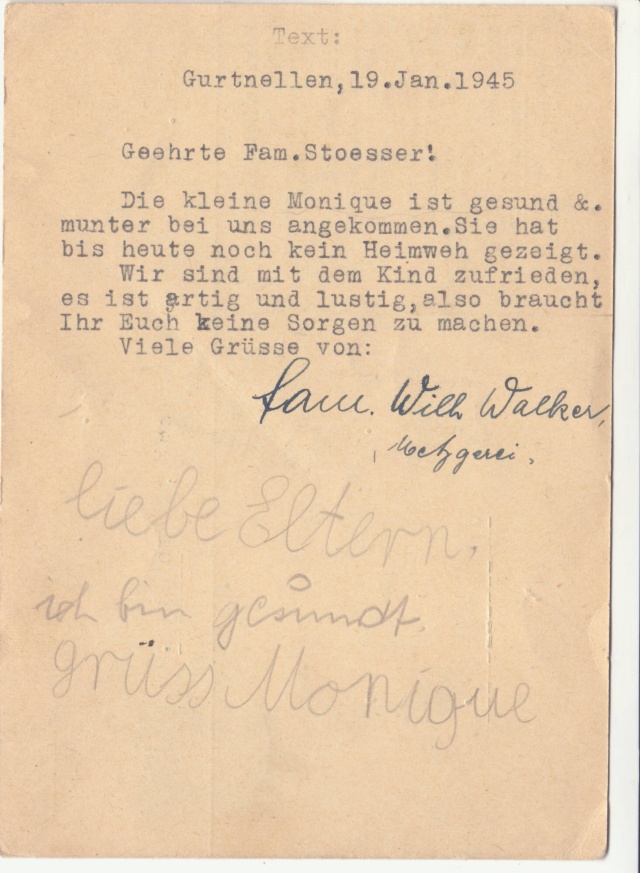 Text:
Gurtnellen,19.Jan.1945
Geehrte Fam.Stoesser!
Die kleine Monique ist gesund &.
munter bei uns angekommen.Sie hat
bis heute noch kein Heimweh gezeigt.
Wir sind mit dem Kind zufrieden,
es ist artig und lustig,also braucht
Ihr Euch keine Sorgen zu machen.
Viele Grüsse von:
Fam. Willi Walker,
Metzgerei.
liebe Eltern.
ich bin gesundt.
grüss Monique